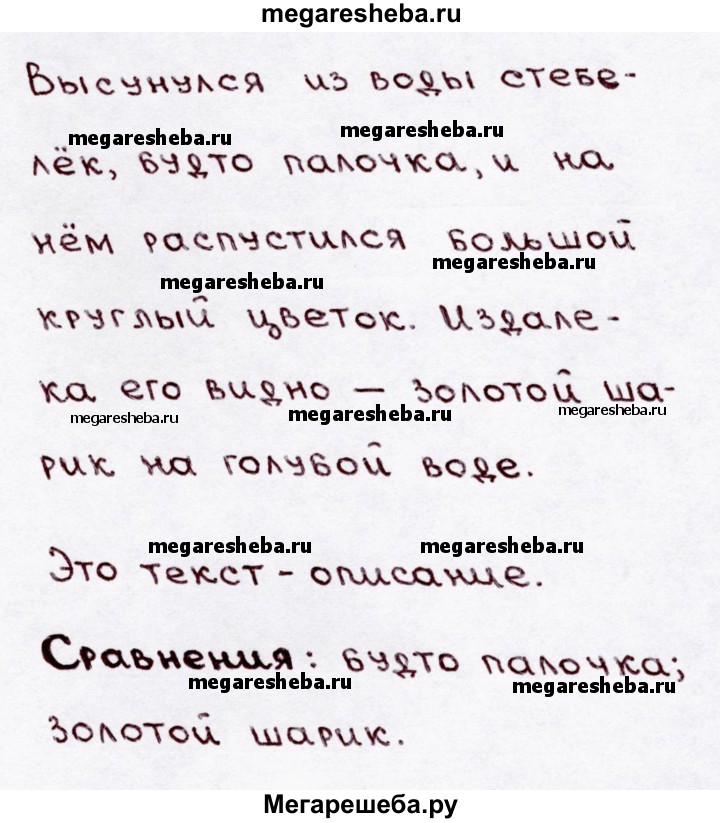 megaresheba.ru
Высунулся из воды стебе-
megaresheba.ru megaresheba.ru
лёк, будто палочка, и на
нём распустился большой
megaresheba.ru megaresheba.ru
круглый цветок. Издале-
ка его видно – золотой ша-
megaresheba.ru megaresheba.ru megaresheba.ru
рик на голубой воде.
megaresheba.ru megaresheba.ru
Это текст - описание.
Сравнения: будто палочка;
megaresheba.ru megaresheba.ru
золотой шарик.
Мегарешеба.ру